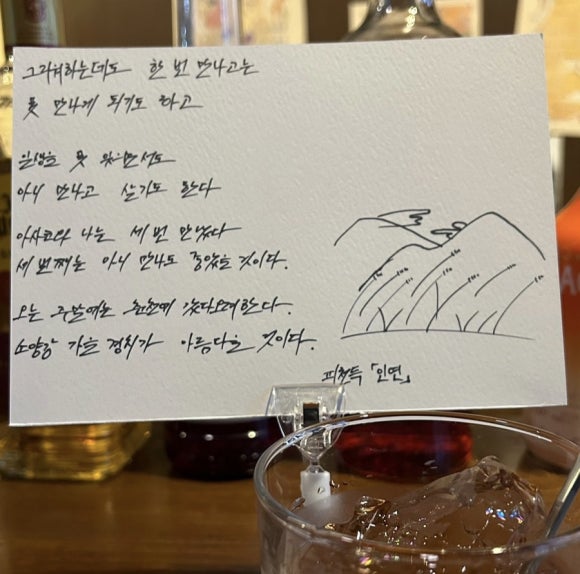 그리워하는데도 한 번 만나고는
못 만나게 되기도 하고
일생을 못 잊으면서도
아니 만나고 살기도 한다
아사코와 나는 세 번 만났다
세 번째는 아니 만나도 좋았을 것이다.
오는 주말에는 춘천에 갔다오려 한다.
소양강 가을 경치가 아름다울 것이다.
피천득 「인연」